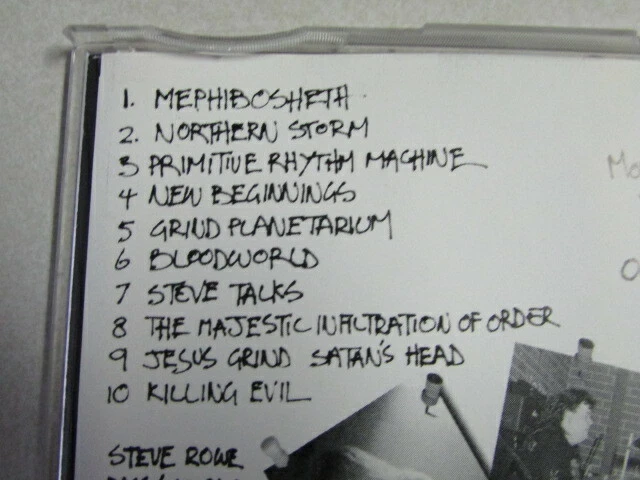 1. MEPHIBOSHETH
2. NORTHERN STORM
3 PRIMITIVE RHYTHM MACHINE
4 NEW BEGINNINGS
5 GRIND PLANETARIUM
6 BLOODWORLD
7 STEVE TALKS
8 THE MAJESTIC INFILTRATION OF ORDER
9 JESUS GRIND SATAN'S HEAD
10 KILLING EVIL
STEVE ROWE